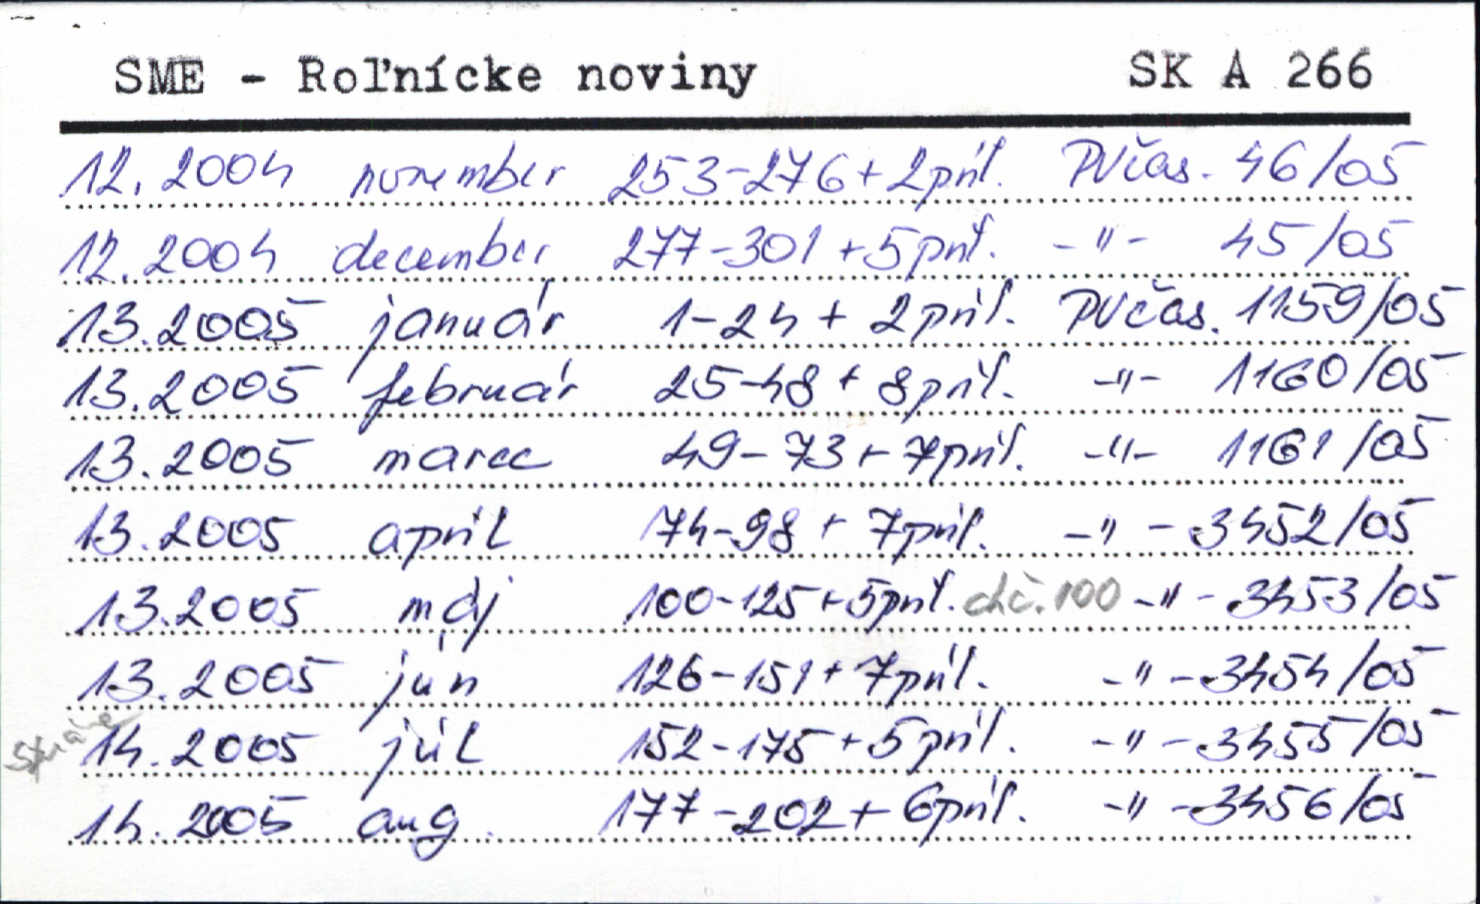 SME - Roľnícke noviny SK A 266
12. 2004 november 253-276 + 2 príl. PVčas. 46/05
12. 2004 december 277-301 + 5 príl. -"- 45/05
13. 2005 január 1-24 + 2 príl. PVčas. 1159/05
13. 2005 február 25-48 + 8 príl. -"- 1160/05
13. 2005 marec 49-73 + 7 príl. -"- 1161/05
13. 2005 apríl 74-98 + 7 príl. -"- 3452/05
13. 2005 máj 100-125 + 5 príl. ch.č. 100 -"- 3453/05
13. 2005 jún 126-151 + 7 príl. -"- 3454/05
14. 2005 júl 152-175 + 5 príl. -"- 3455/05
14. 2005 aug. 177-202 + 6 príl. -"- 3456/05